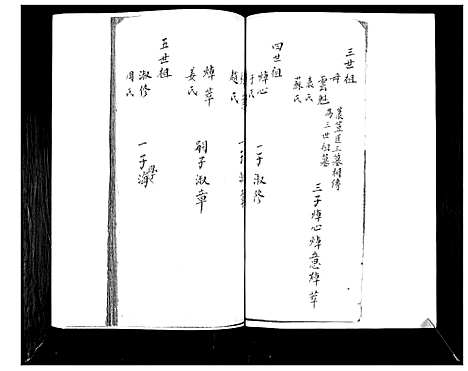 三世祖
雲魁
袁氏
蘇氏
為三世祖墓
三子焯心焯意焯章
四世祖
焯心
于氏
一子淑修
趙氏
焯章
姜氏
嗣子淑章
五世祖
淑修
周氏
一子海